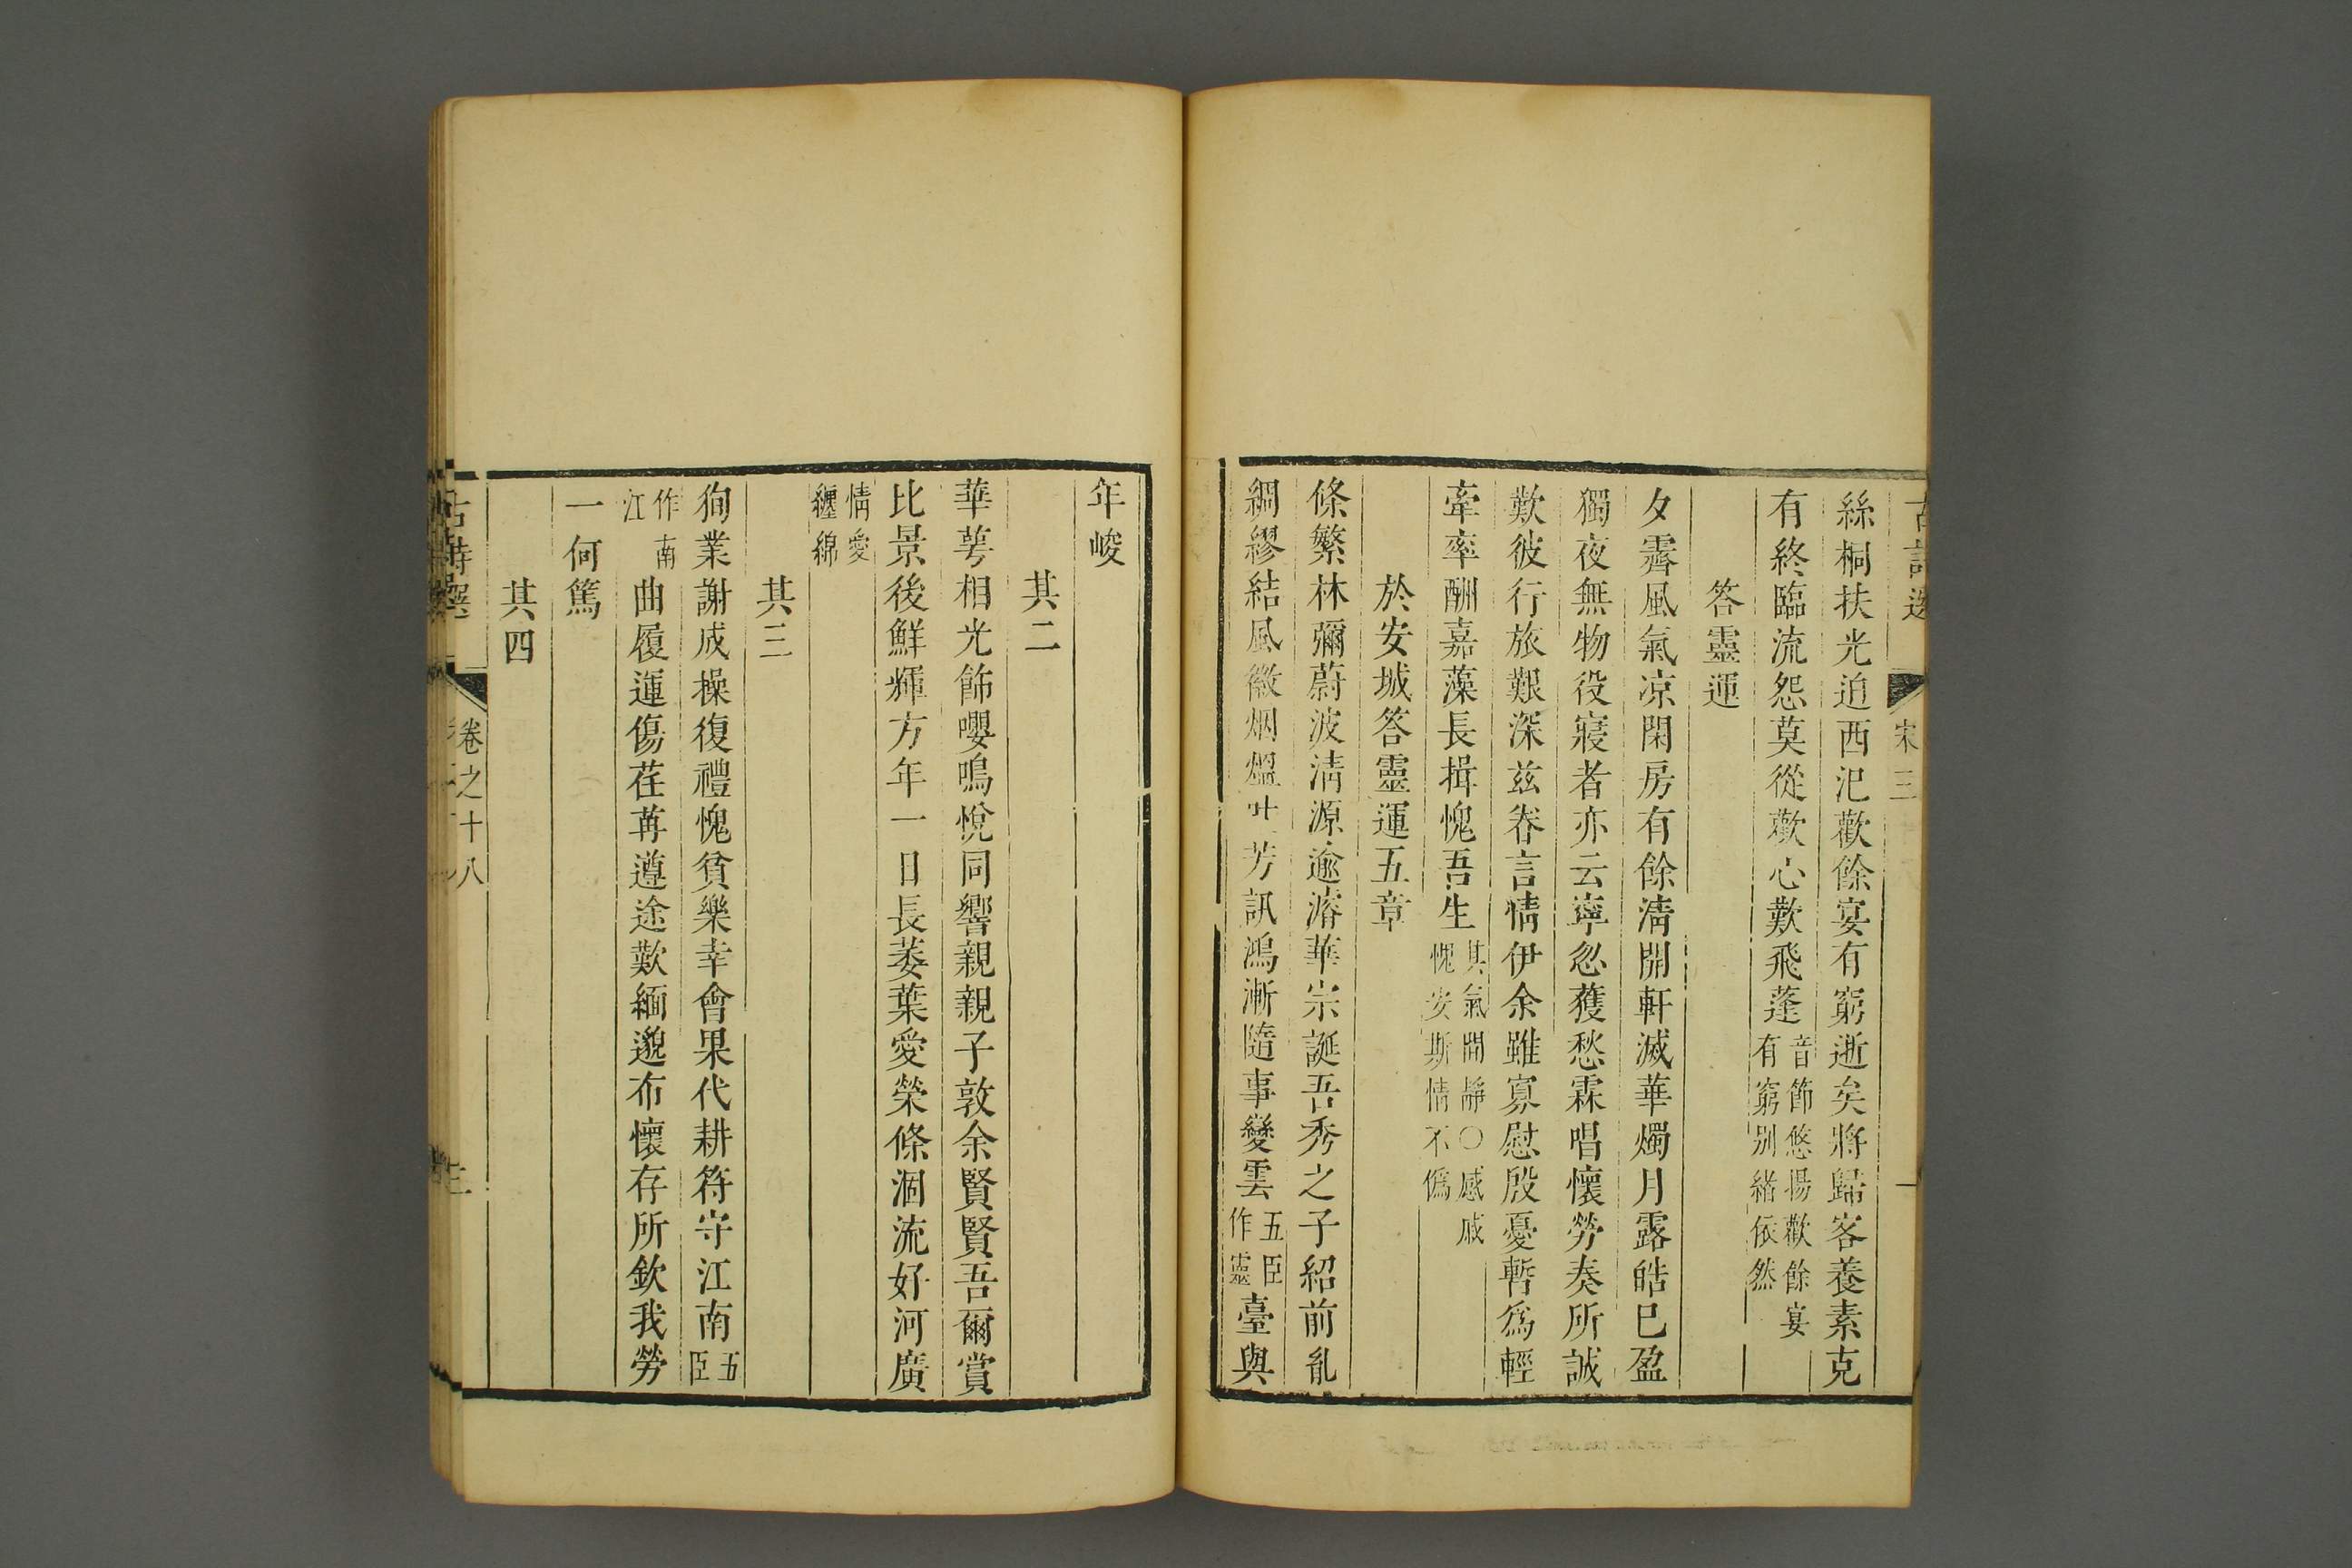 宋三
絲桐扶光迫西汜歡餘宴有窮逝矣將歸客養素克
有終臨流怨莫從歡心歎飛蓬音節悠揚歡餘宴有窮别緒依然
答靈運
夕霽風氣凉閑房有餘淸開軒滅華燭月露皓巳盈
獨夜無物役寢者亦云寧忽獲愁霖唱懷勞奏所誠
歎彼行旅艱深兹眷言情伊余雖寡慰殷憂暫爲輕
牽率酬嘉藻長揖愧吾生其氣閒靜○感戚愧安斯情不僞
於安城答靈運五章
條繁林彌蔚波淸源逾濬華宗誕吾秀之子紹前胤
綢繆結風徽烟熅吐芳訊鴻漸隨事變雲五臣作靈臺與
年峻
其二
華萼相光飾嚶鳴悅同響親親子敦余賢賢吾爾賞
比景後鮮輝方年一日長萎葉愛榮條涸流好河廣
情愛纏綿
其三
徇業謝成操復禮愧貧樂幸會果代耕符守江南五臣
作南江曲履運傷荏苒遵途歎緬邈布懷存所欽我勞
一何篤
其四
古詩選 卷之十八 三